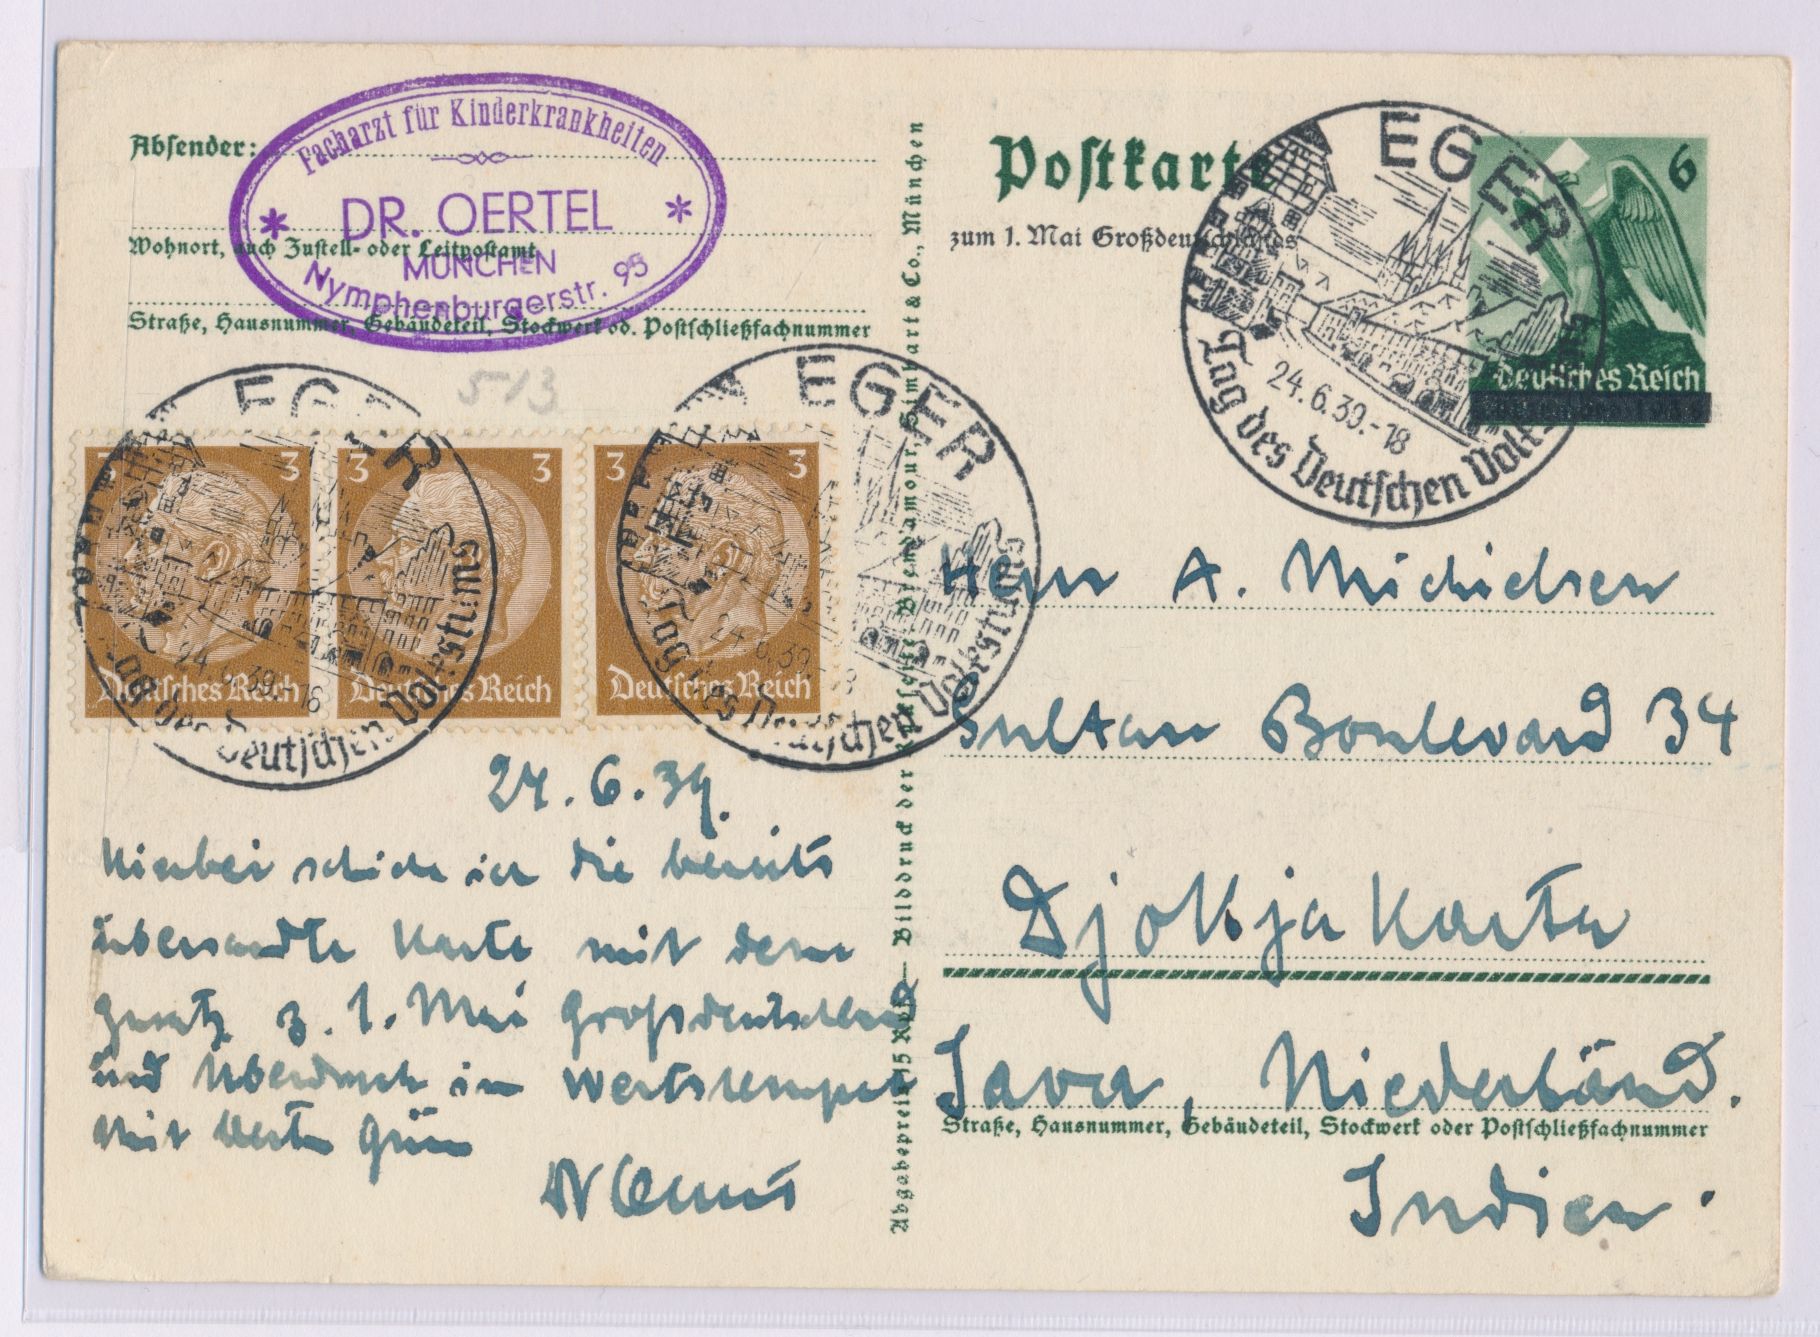 Absender:
Facharzt für Kinderkrankheiten
DR. OERTEL
MÜNCHEN
Nymphenburgerstr. 95
Wohnort, auch Zustell- oder Leitpostamt
Straße, Hausnummer, Gebäudeteil, Stockwerk od. Postschließfachnummer
513
Postkarte
zum 1. Mai Großdeutschlands
6
Deutsches Reich
EGER
24.6.39.-18
Tag des Deutschen Volkstums
3
Deutsches Reich
3
Deutsches Reich
3
Deutsches Reich
EGER
24.6.39.-16
Tag des Deutschen Volkstums
EGER
24.6.39.-18
Tag des Deutschen Volkstums
24.6.39.
Hierbei schicke ich die bereits
übersandte Karte mit dem
Zusatz z. 1. Mai Großdeutschland
und Überdruck im Wertstempel
Mit besten Grüßen
Abgabepreis 15 Rpf. — Bilddruck der
Giehmhart & Co., München
Herrn A. Michielsen
Sultan Boulevard 34
Djokjakarta
Java, Niederländ.
Straße, Hausnummer, Gebäudeteil, Stockwerk oder Postschließfachnummer
Indien.